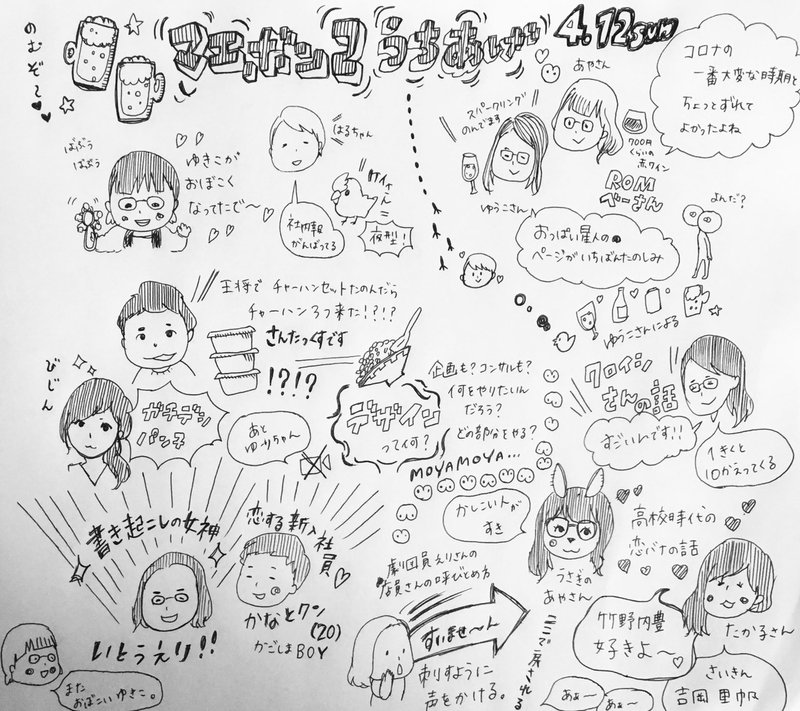 のむぞ〜
マエボン2 うちあげ
4.12 SUN
あやさん
コロナの
一番大変な時期と
ちょっとずれて
よかったよね
スパークリング
のんでます
700円
くらいの
赤ワイン
ゆうこさん
ROM
べーさん
よんだ?
おっぱい星人の
ページがいちばんたのしみ
ばぶぅ
ばぶぅ
ゆきこが
おぼこく
なってたで〜
はるちゃん
社内報
がんばってる
ケイさん
=
夜型!
王将で
チャーハンセットたのんだら
チャーハン3つ来た!?!?
さんたっくすです
!?!?
びじん
ガチデン
パンチ
あと
ゆみちゃん
デザイン
って何?
企画も?コンサルも?
何をやりたいん
だろう?
どの部分をやる?
MOYAMOYA...
ゆうこさんによる
クロイシ
さんの話
すごいんです!!
1きくと
10かえってくる
かしこい人が
すき
うさぎの
あやさん
高校時代の
恋バナの話
たか子さん
竹野内豊
好きよ〜
さいきん
吉岡里帆
あぁ〜
あぁ〜
ここで戻される
書き起こしの女神
いとうえり!!
恋する新入社員
かなとクン
(20)
かごしまBOY
劇団員えりさんの
店員さんの呼びとめ方
すいませ〜ん
刺すように
声をかける。
また
おぼこいゆきこ。